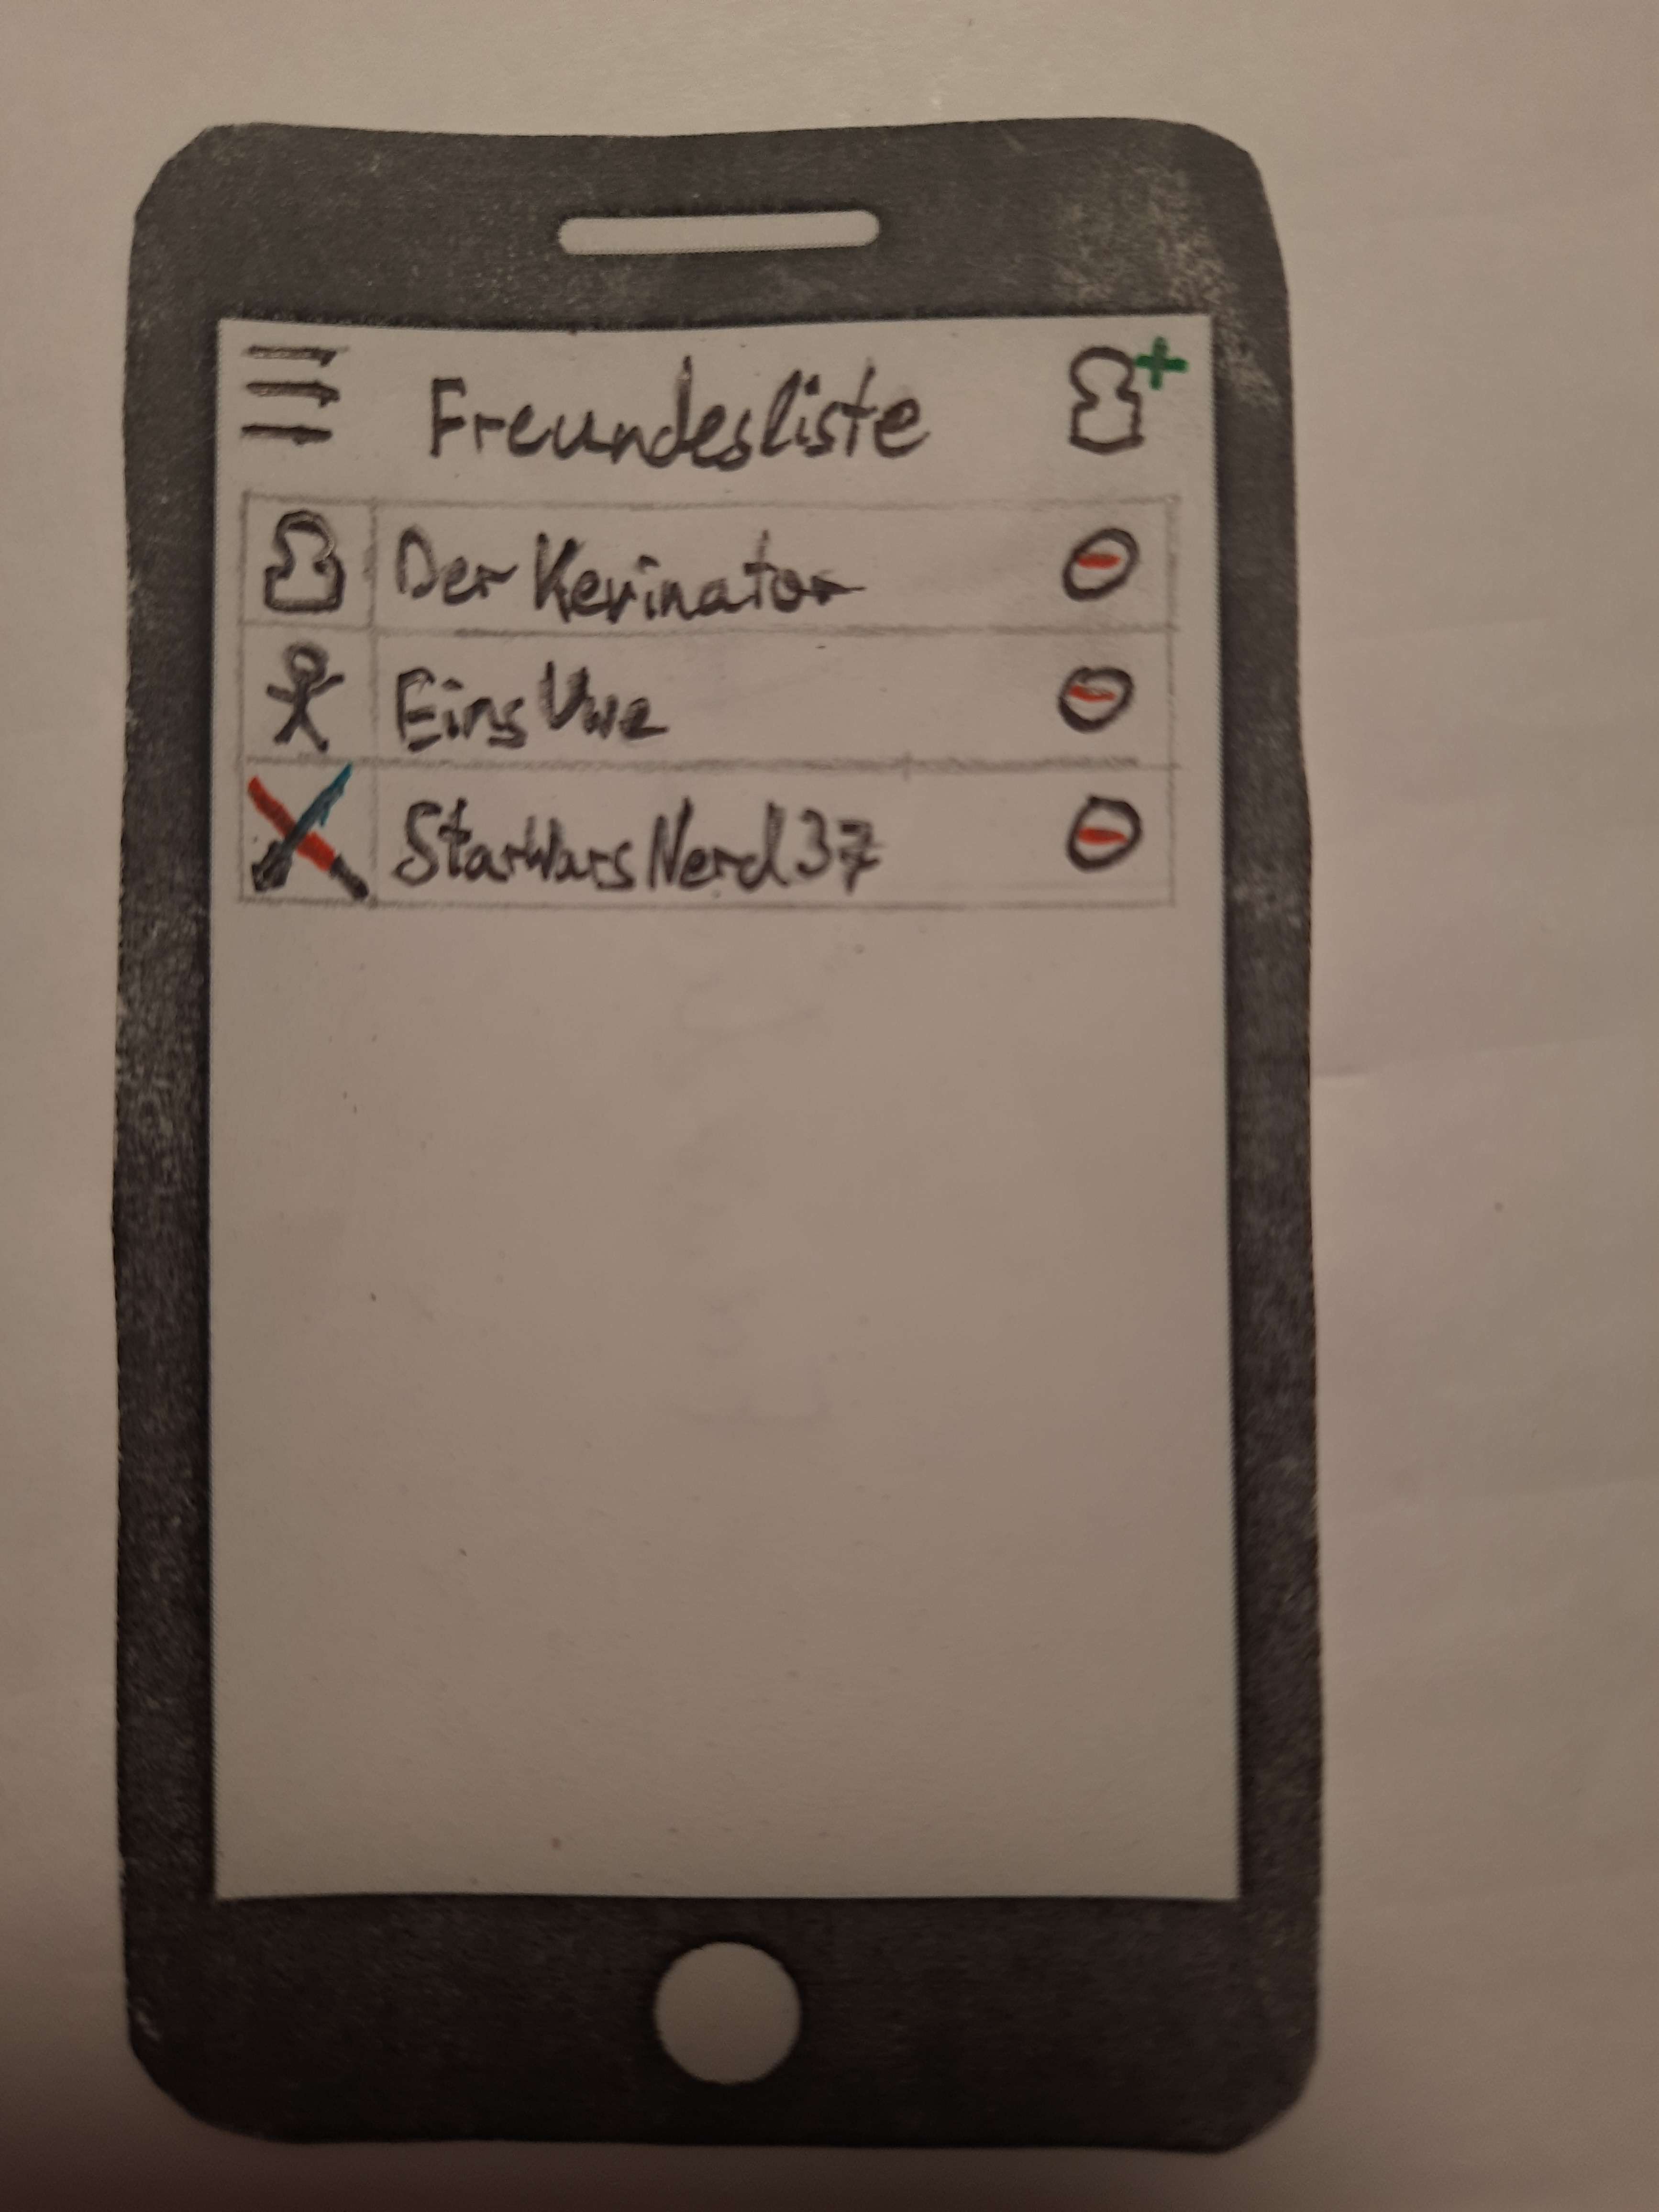 Freundesliste
Der Kevinator
Eins Uwe
StarWars Nerd 37